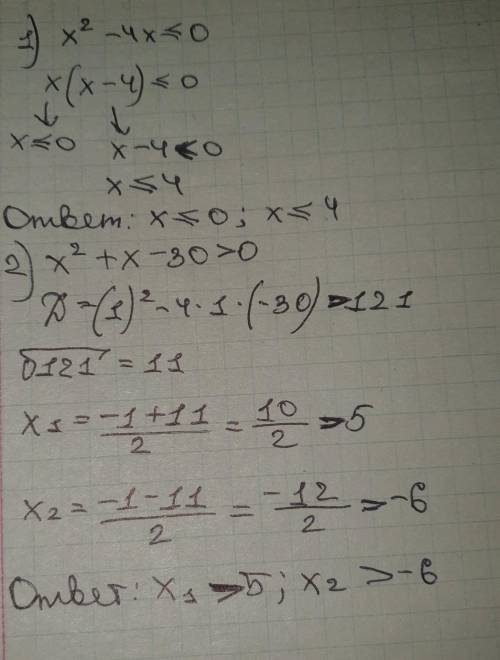 1) x² - 4x ≤ 0
x(x - 4) ≤ 0
↓ ↓
x ≤ 0 x - 4 ≤ 0
x ≤ 4
Ответ: x ≤ 0; x ≤ 4
2) x² + x - 30 > 0
D = (1)² - 4 · 1 · (-30) = 121
√121 = 11
x₁ = (-1 + 11)/2 = 10/2 = 5
x₂ = (-1 - 11)/2 = -12/2 = -6
Ответ: x₁ > 5; x₂ > -6